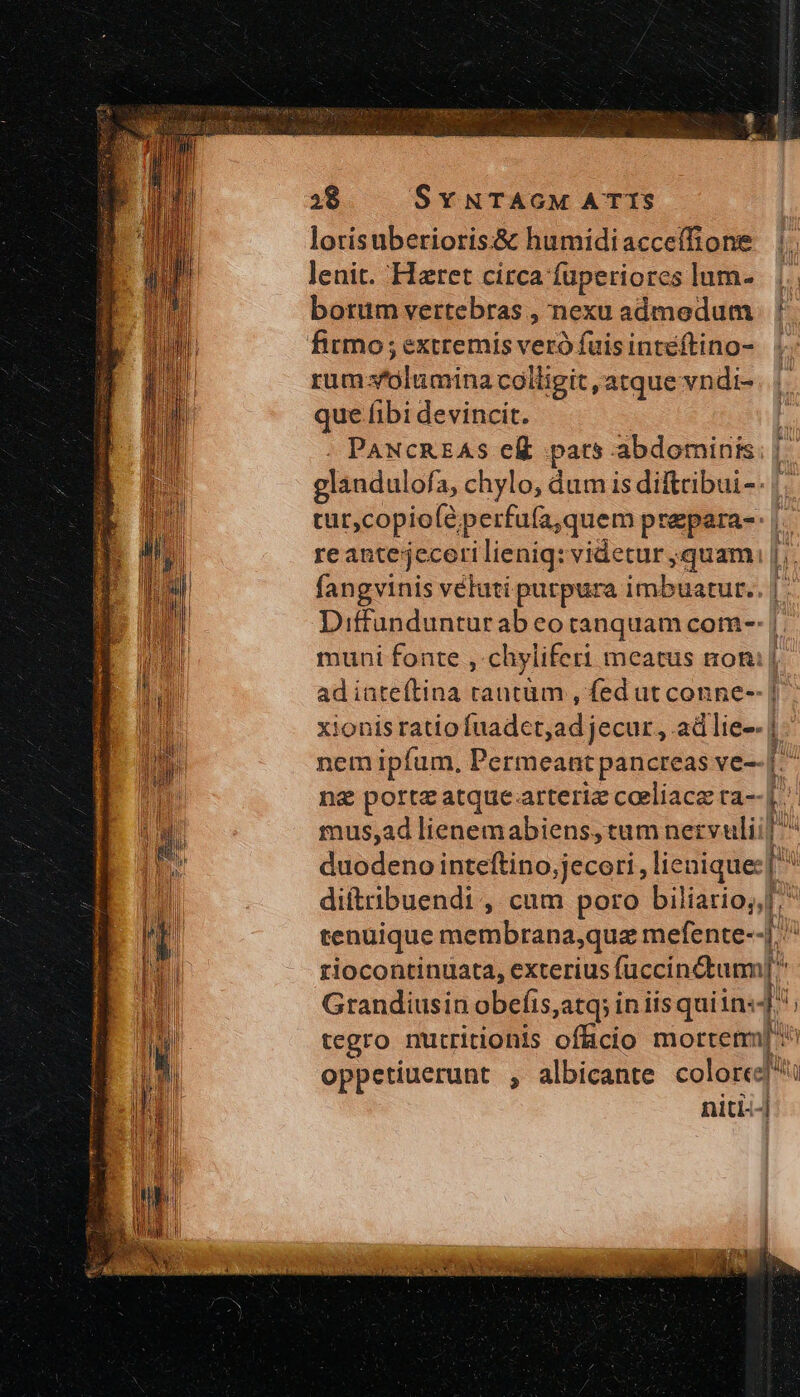 28 SYNTAGMATIS
loris uberioris & humidi accessione
lenit. Hæret circa ſuperiores lum-
borum vertebras, nexu admodum
firmo; extremis verò ſuis inteſtino-
rum volumina colligit, atque vndi-
que ſibi devincit.
PANCREAS eſt pars abdominis
glanduloſa, chylo, dum is diſtribui-
tur, copioſè perfuſa, quem præpara-
re ante jecori lieniq; videtur, quam
ſangvinis veluti purpura imbuatur.
Diffunduntur ab eo tanquam com-
muni fonte, chyliferi meatus non
ad inteſtina tantùm, ſed ut conne-
xionis ratio ſuadet, ad jecur, ad lie-
nem ipſum. Permeant pancreas ve-
næ portæ atque arteriæ cœliacæ ra-
mus, ad lienem abiens, tum nervuli
duodeno inteſtino, jecori, lienique
diſtribuendi, cum poro biliario,
tenuique membrana, quæ meſente-
rio continuata, exterius ſuccinctum
Grandius in obeſis, atq; in iis qui in-
tegro nutritionis officio mortem
oppetiuerunt, albicante colore
niti-